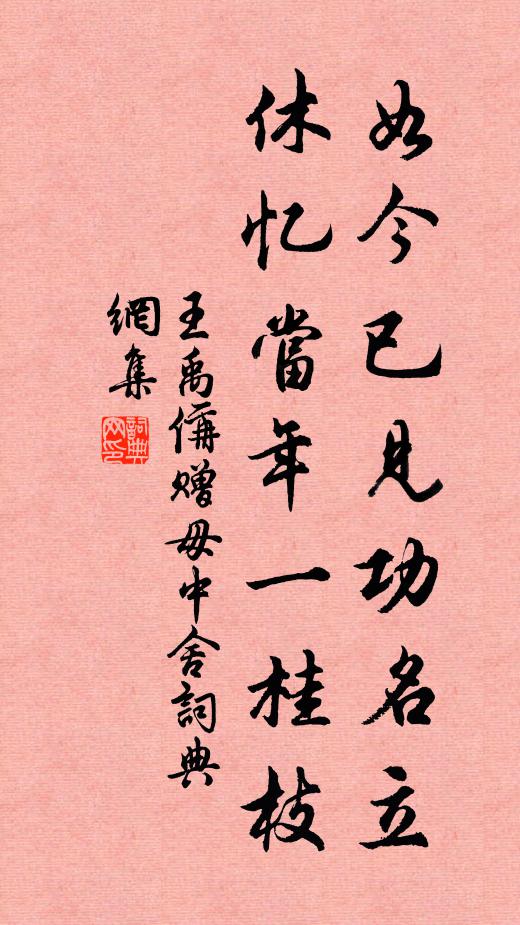 如今已見功名立
休忆當年一桂枝
王禹偁赠毋中舍詞典
網集
詞典網印